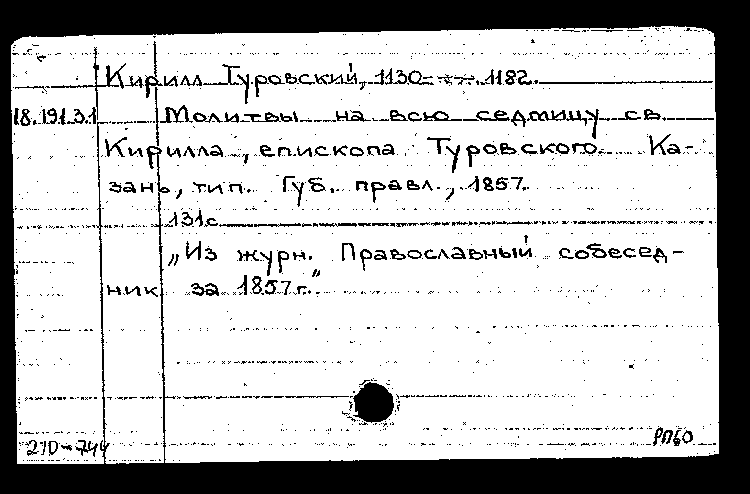 Кирилл Туровский, 1130- 1182.
18.191.3.1 Молитвы на всю седмицу св.
Кирилла, епископа Туровского. Ка-
зань, тип. Губ. правл., 1857.
131с.
„Из журн. Православный собесед-
ник за 1857г.”
210-744